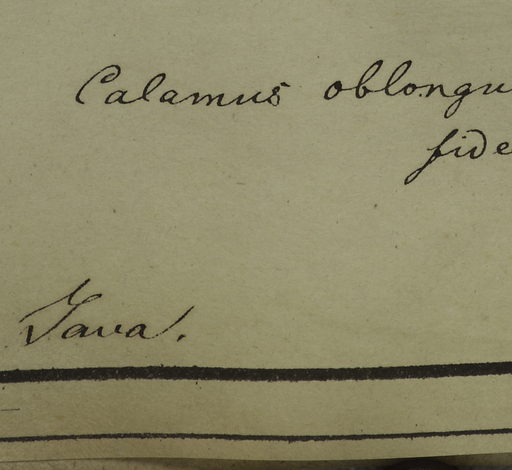 Calamus oblongu
fide
Java.